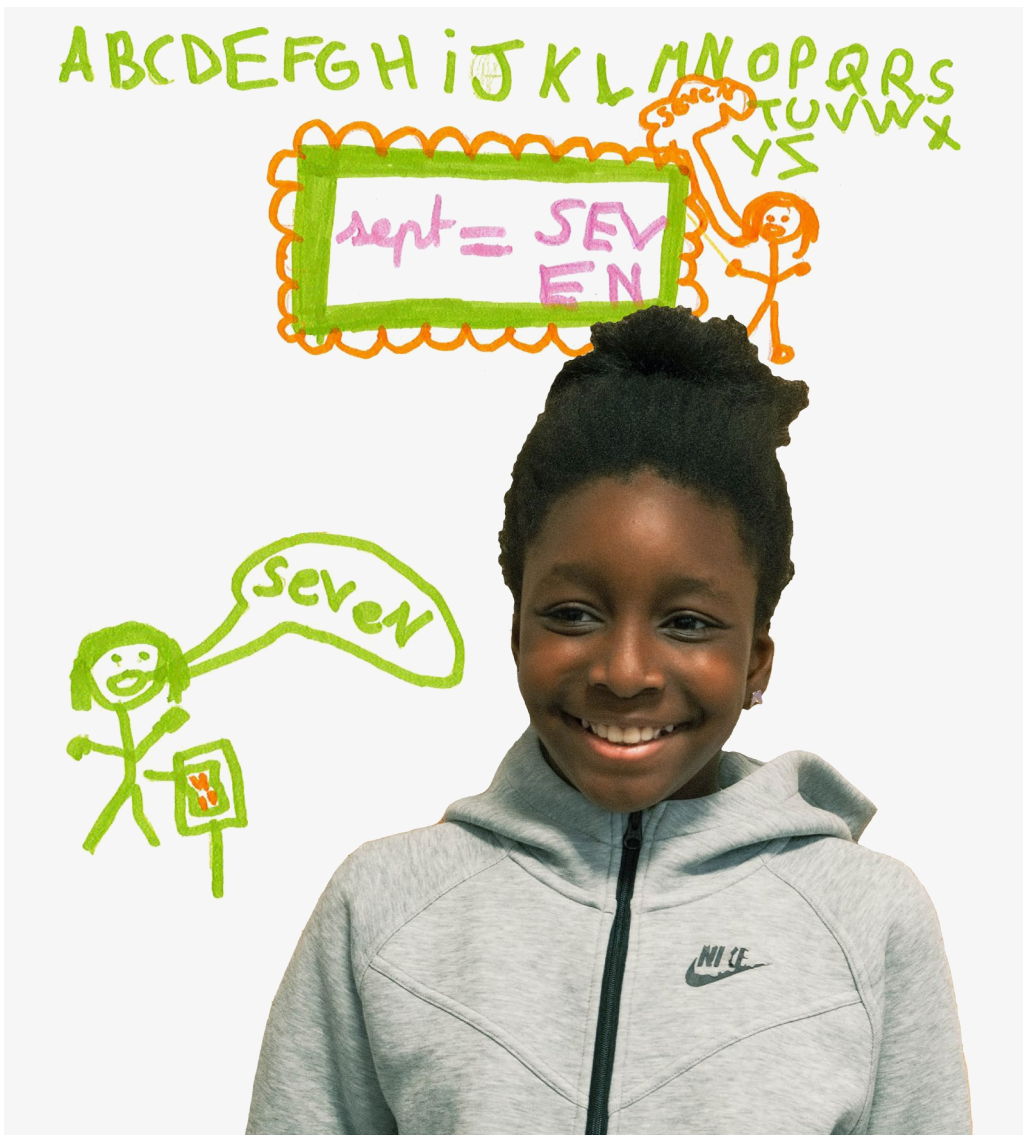 ABCDEFGHiJKLMNOPQRS
TUVWX
YZ
SEVEN
sept = SEV
EN
SeVeN
NIKE